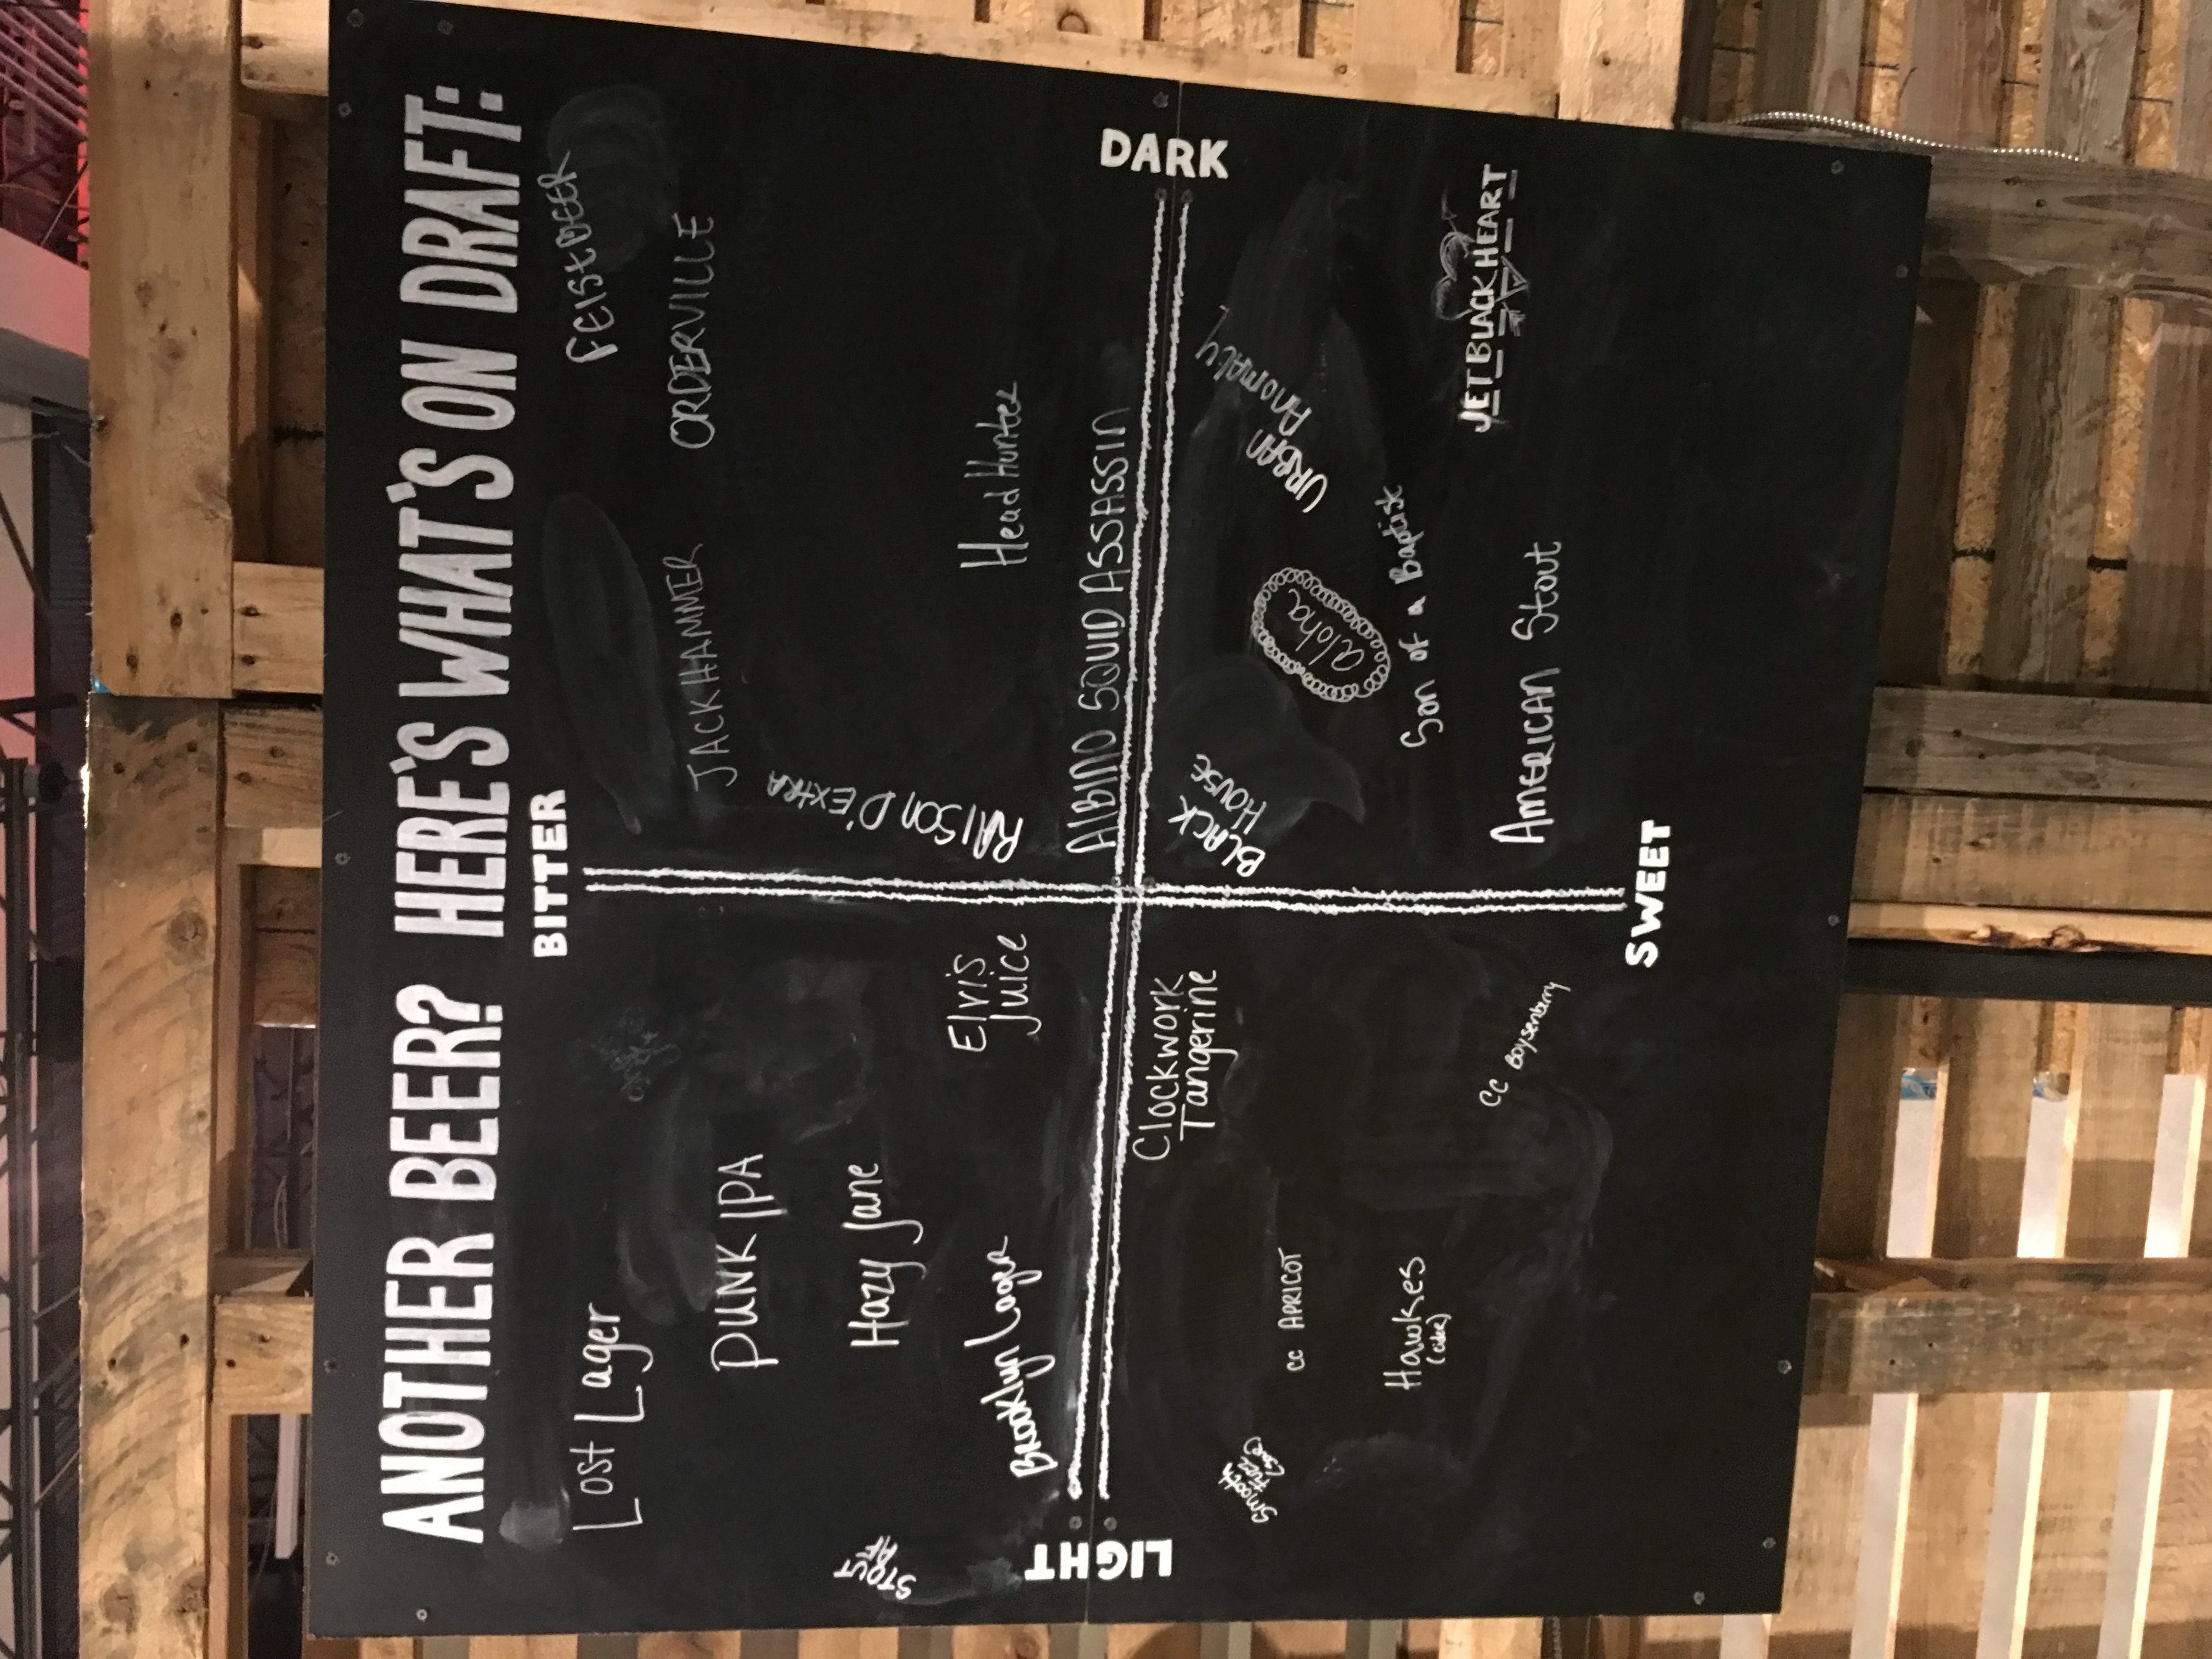 ANOTHER BEER? HERE'S WHAT'S ON DRAFT:
BITTER
Lost Lager
FEISTDEER
PUNK IPA
JACKHAMMER
ORDERVILLE
Hazy Jane
RAISON D'EXTRA
Elvis
Juice
Head Hunter
Brooklyn Lager
ALBINO SQUID ASSASSIN
LIGHT
DARK
Clockwork
Tangerine
BLACK
HOUSE
URBAN
Anomaly
Smooth
CC APRICOT
aloha
Hawkes
(cider)
Son of a Baptist
JET BLACK HEART
CC Boysenberry
AMERICAN Stout
SWEET